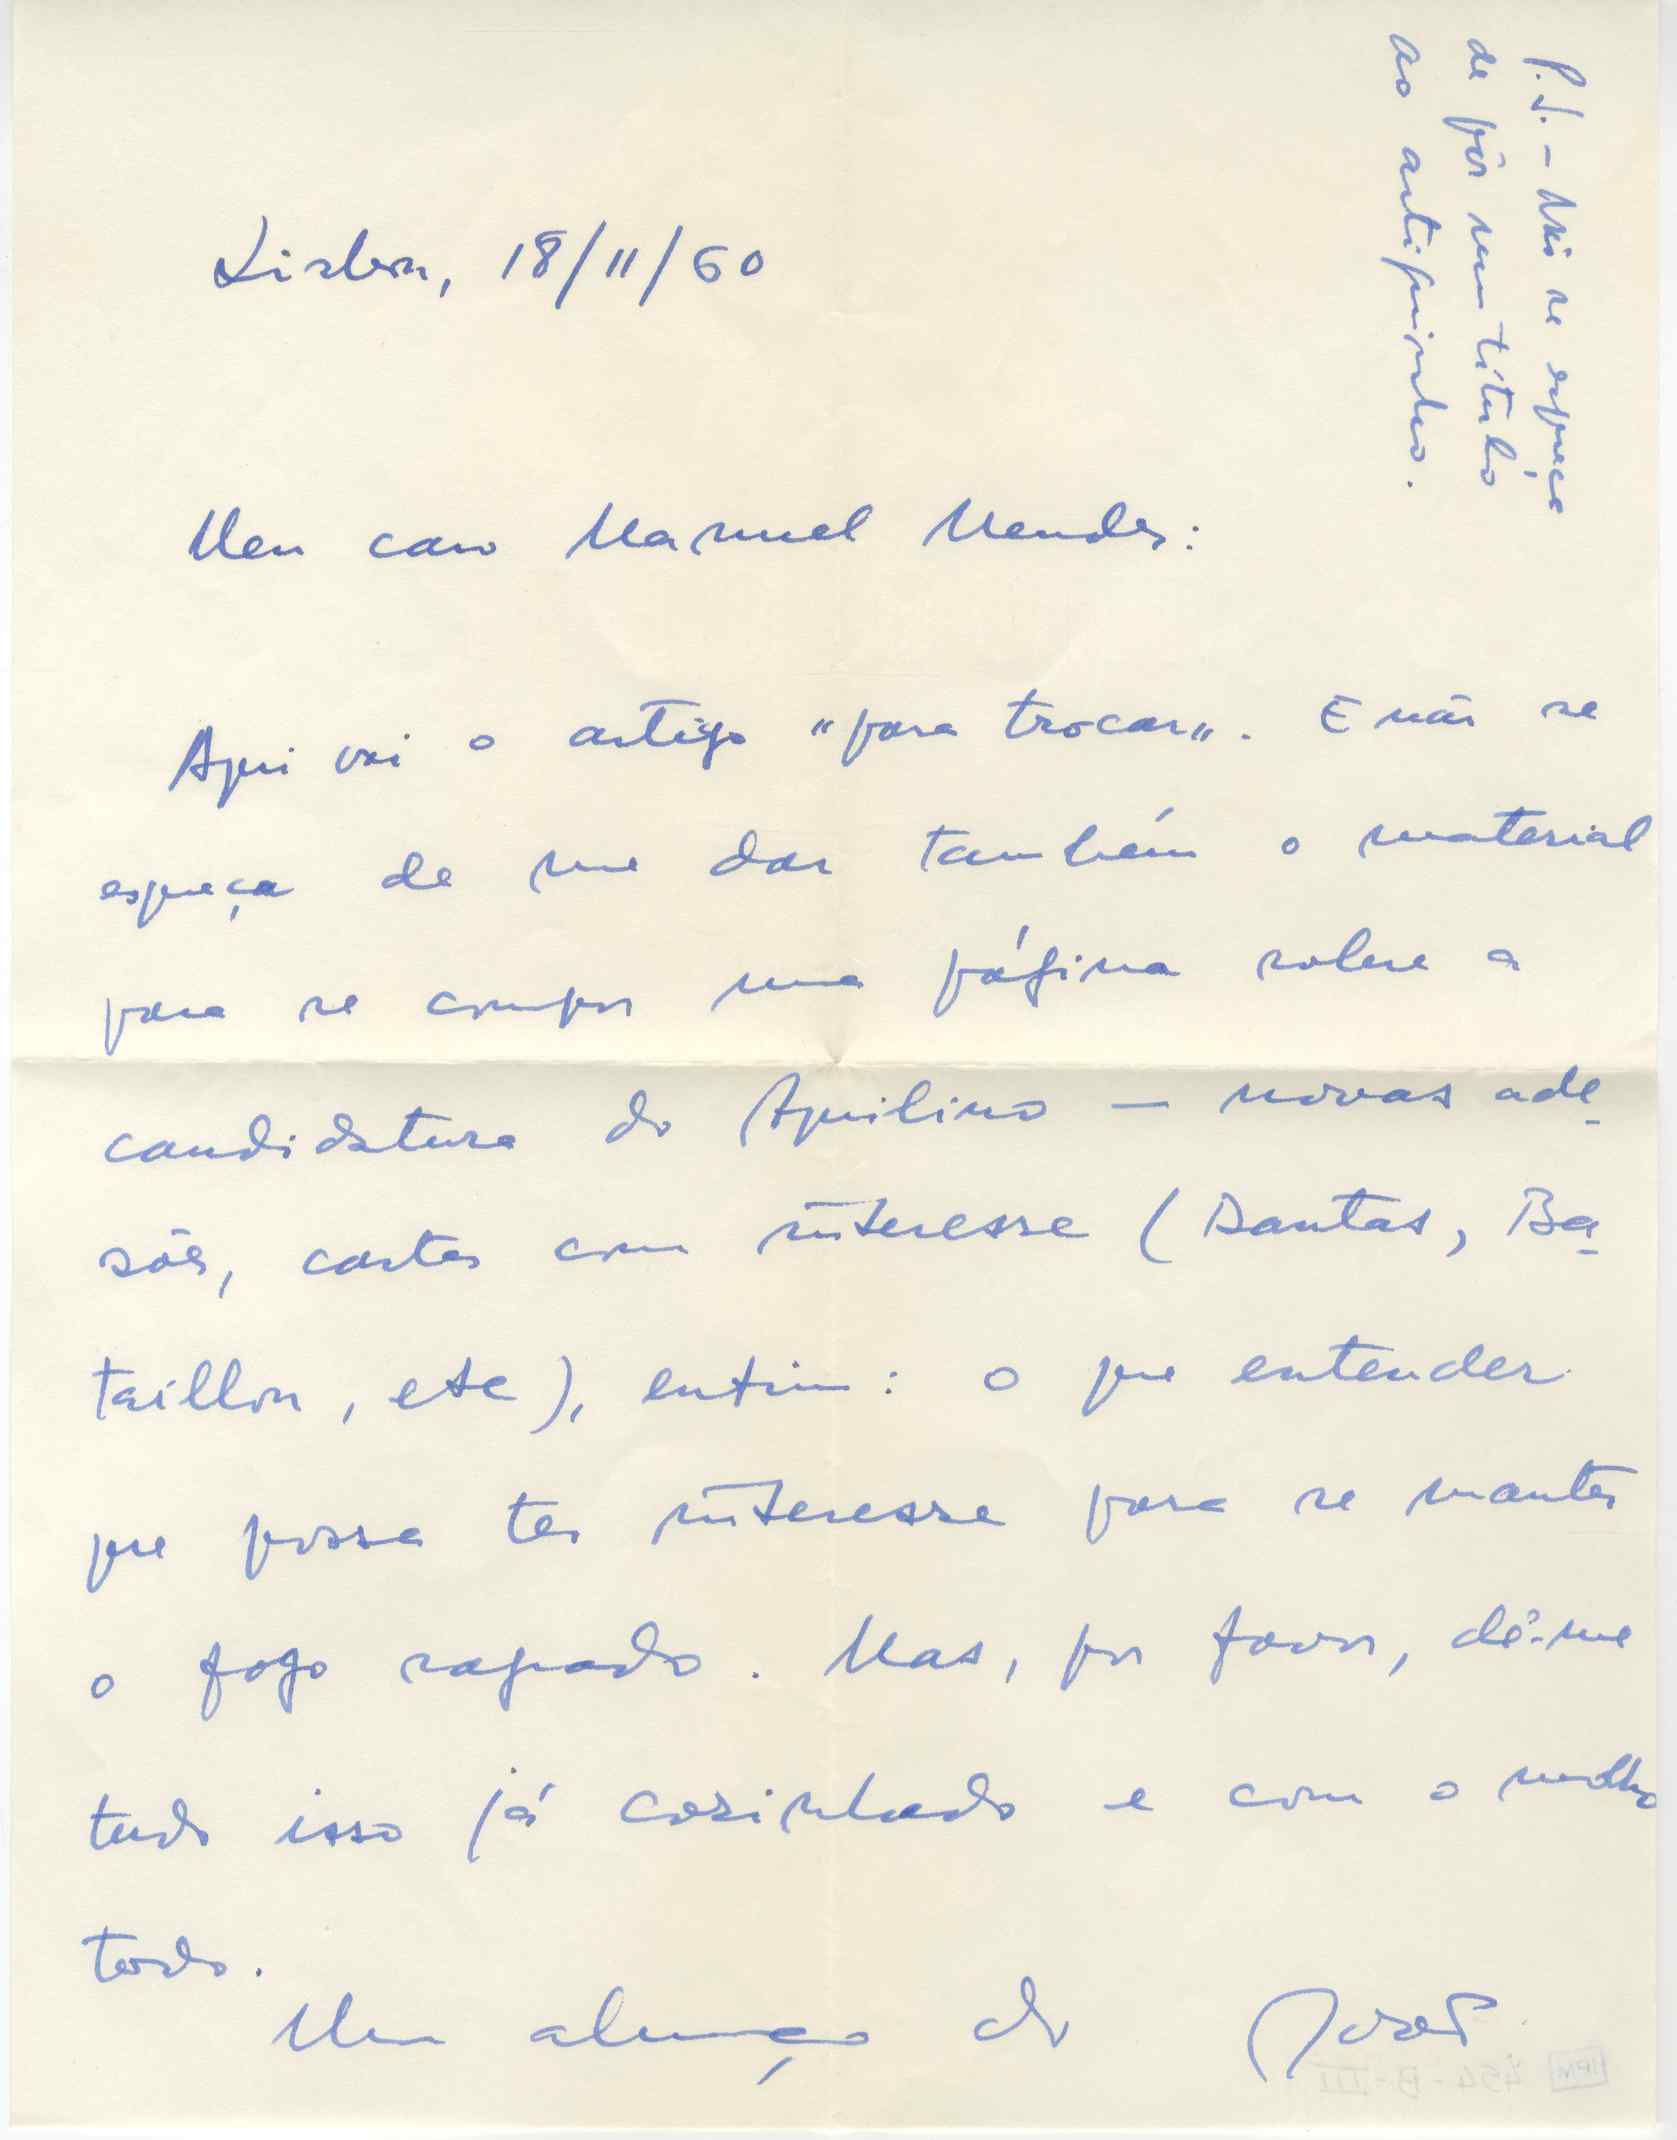 Lisboa, 18/11/60
Meu caro Manuel Mendes:
Aqui vai o artigo "para trocar". E não se
esqueça de me dar também o material
para se compor uma página sobre a
candidatura do Aquilino — novas ade-
sões, cartas com interesse (Dantas, Ba-
taillon, etc), enfim: o que entender
que possa ter interesse para se manter
o fogo sagrado. Mas, por favor, dê-me
tudo isso já cozinhado e com o molho
todo.
Um abraço do
P.S. - Não se esqueça
de pôr um título
ao artiguinho.
454-B-III